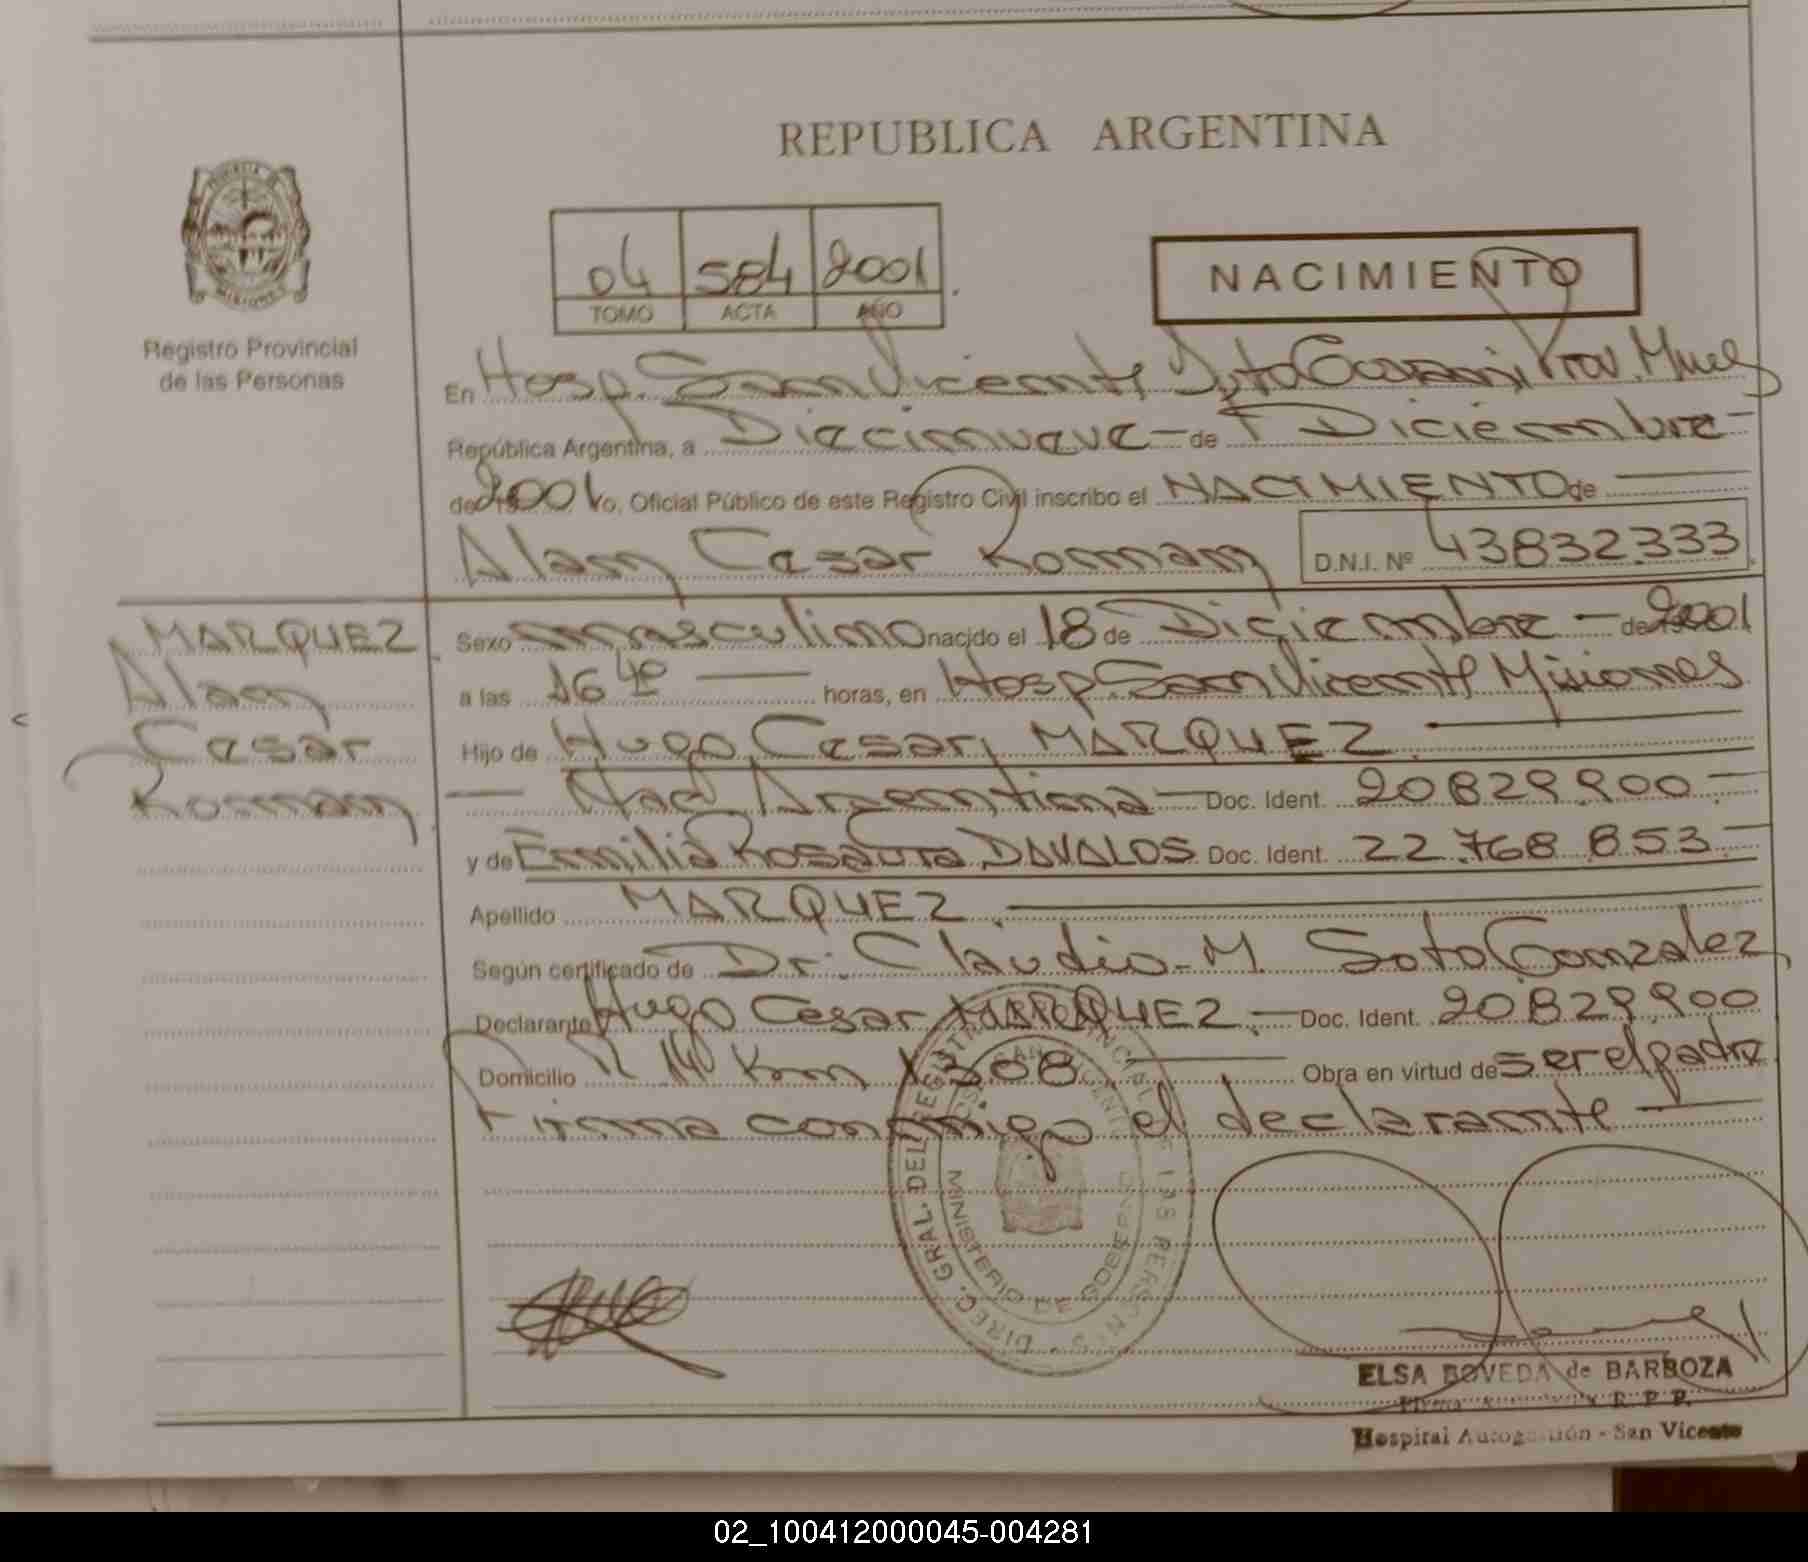 REPUBLICA ARGENTINA
PROVINCIA DE
MISIONES
Registro Provincial
de las Personas
04 584 2001
TOMO ACTA AÑO
NACIMIENTO
En Hosp. San Vicente Dpto Guarani Prov. Mnes
República Argentina, a Diecinueve - de Diciembre -
de 2001 Yo, Oficial Público de este Registro Civil inscribo el NACIMIENTO de
Alan Cesar Roman D.N.I. Nº 43832.333
MARQUEZ
Alan
Cesar
Roman
Sexo masculino nacido el 18 de Diciembre - de 2001
a las 16 40 horas, en Hosp San Vicente Misiones
Hijo de Hugo Cesar MARQUEZ
Nac Argentina - Doc. Ident. 20829.900 -
y de Emilia Rosaura DAVALOS Doc. Ident. 22.768.853 -
Apellido MARQUEZ
Según certificado de Dr. Claudio M. Soto Gonzalez
Declarante Hugo Cesar MARQUEZ - Doc. Ident. 20829.900
Domicilio R 14 Km 1308 Obra en virtud de ser el padre
Firma conmigo el declarante
DIREC. GRAL. DEL REGISTRO PROVINCIAL DE LAS PERSONAS
MINISTERIO DE GOBIERNO
ELSA BOVEDA de BARBOZA
R. P. P.
Hospital Autogestión - San Vicente
02_100412000045-004281